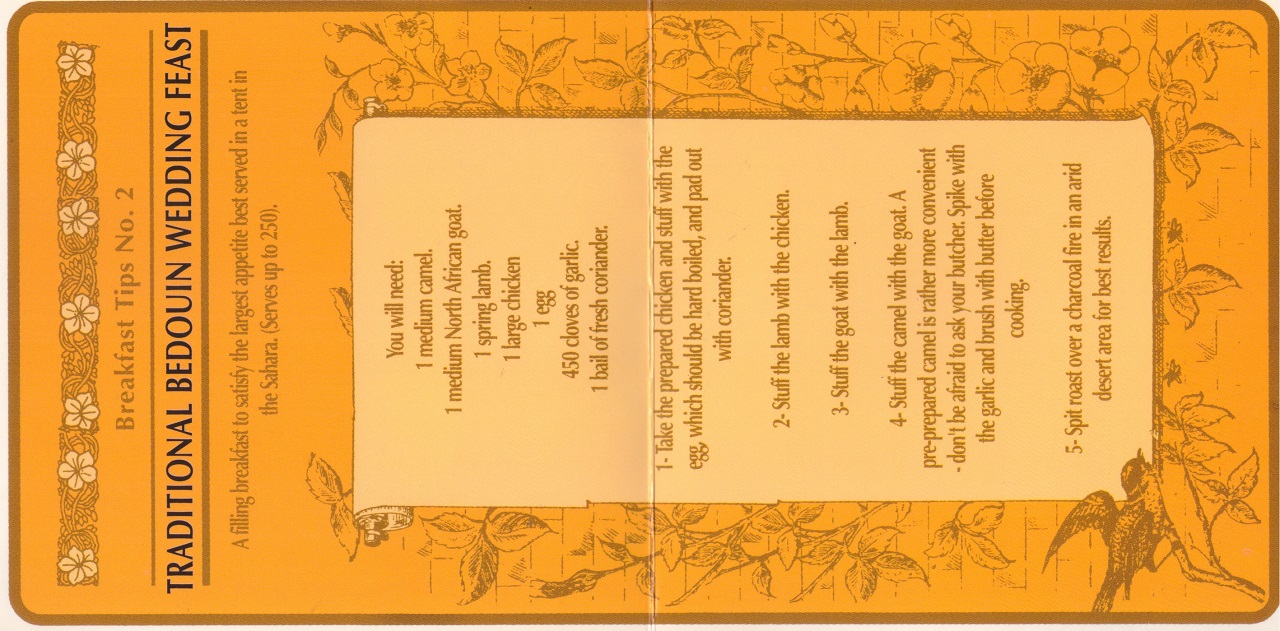 Breakfast Tips No. 2
TRADITIONAL BEDOUIN WEDDING FEAST
A filling breakfast to satisfy the largest appetite best served in a tent in
the Sahara. (Serves up to 250).
You will need:
1 medium camel.
1 medium North African goat.
1 spring lamb.
1 large chicken
1 egg
450 cloves of garlic.
1 bail of fresh coriander.
1- Take the prepared chicken and stuff with the
egg, which should be hard boiled, and pad out
with coriander.
2- Stuff the lamb with the chicken.
3- Stuff the goat with the lamb.
4- Stuff the camel with the goat. A
pre-prepared camel is rather more convenient
- don't be afraid to ask your butcher. Spike with
the garlic and brush with butter before
cooking.
5- Spit roast over a charcoal fire in an arid
desert area for best results.